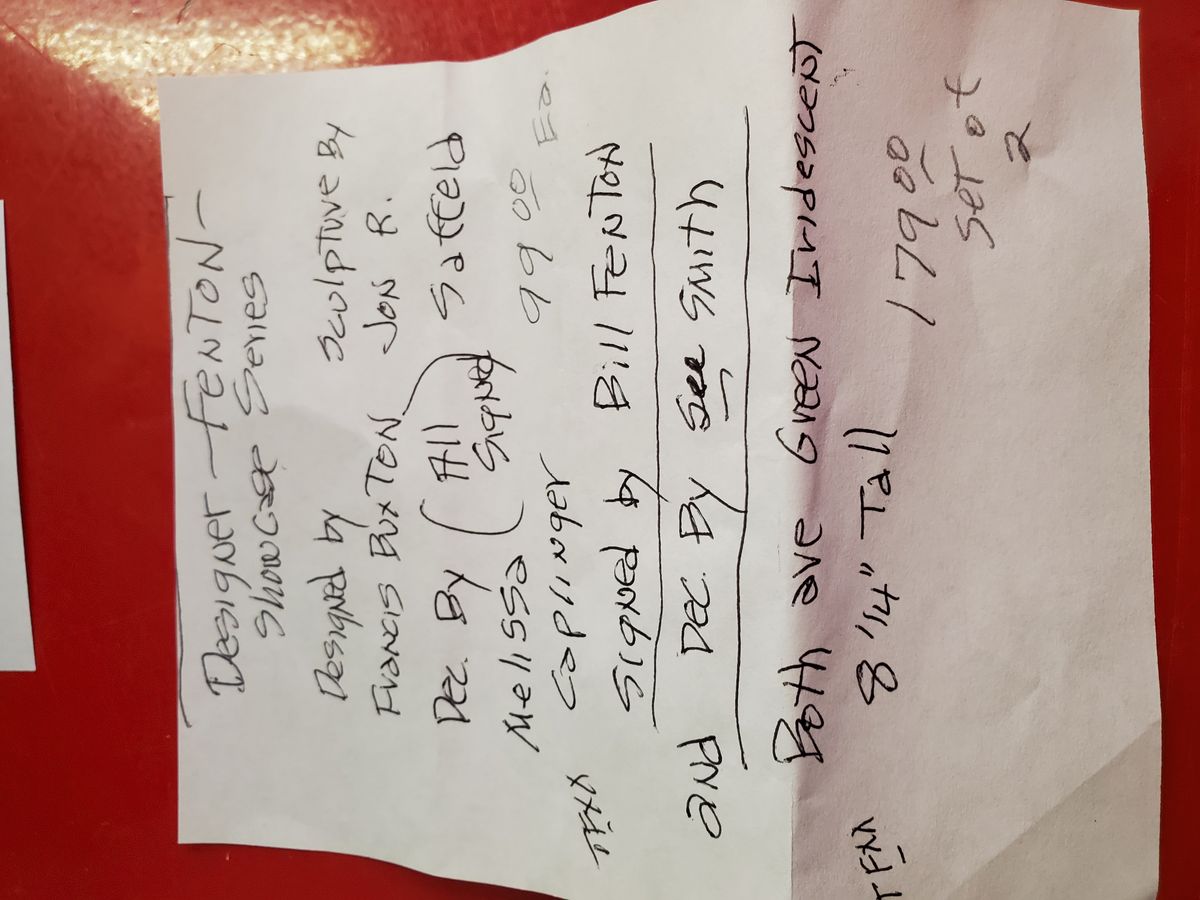 Designer - FENTON -
Showcase Series
Designed by
Francis Buxton
Sculpture By
Jon R.
Saffeld
Dec. By (All Signed)
Melissa
Caplinger
99 00 Ea.
Signed by Bill FENTON
and Dec. By Sue Smith
Both are Green Iridescent
8 1/4" Tall
179 00
Set of
2